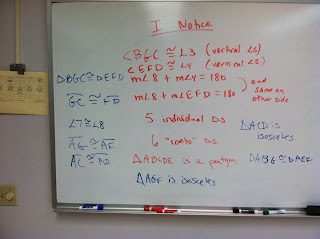 I Notice
∠BGC ≅ ∠3 (vertical ∠s)
∠EFD ≅ ∠4 (vertical ∠s)
△BGC ≅ △EFD
m∠8 + m∠4 = 180
m∠8 + m∠EFD = 180
and same on other side
GC ≅ FD
∠7 ≅ ∠8
5 individual △s
△ACD is isosceles
AG ≅ AF
6 "combo" △s
AC ≅ AD
△ABCDE is a pentagon
△ABG ≅ △AEF
△AGF is isosceles